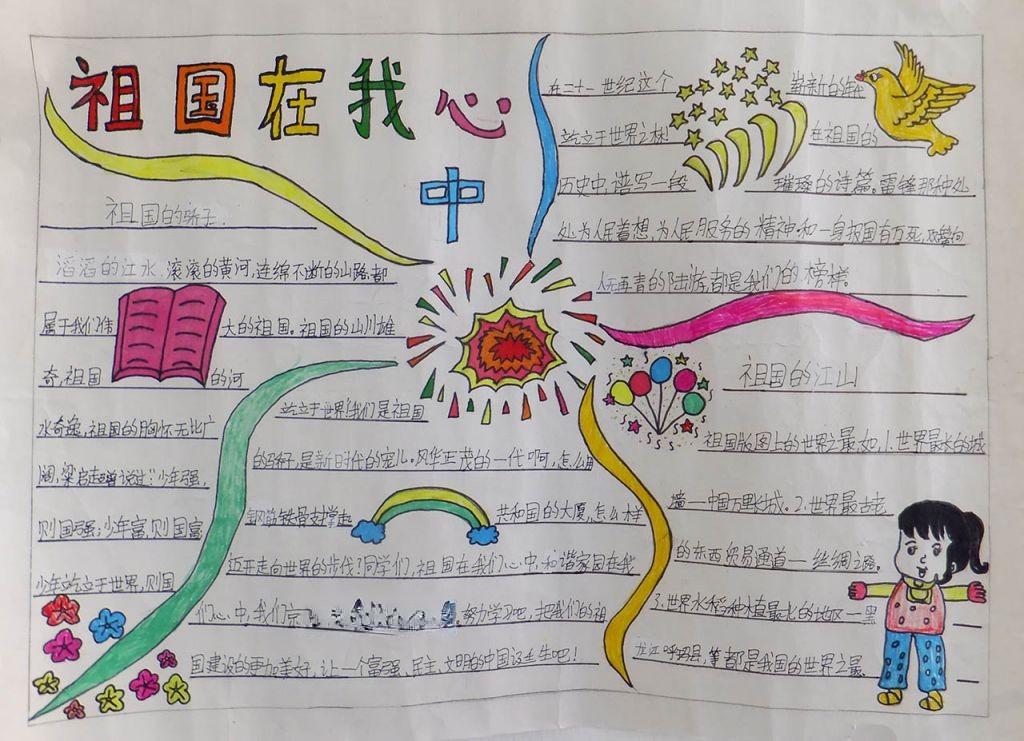 祖国在我心
中
祖国的骄子.
滔滔的江水、滚滚的黄河,连绵不断的山路,都
属于我们伟大的祖国。祖国的山川雄
奇,祖国的河
水奇逸,祖国的胸怀无比广
阔,梁启超曾说过:"少年强,
则国强;少年富,则国富
少年屹立于世界,则国
屹立于世界!我们是祖国
的骄子,是新时代的宠儿。风华正茂的一代啊,怎么用
钢筋铁骨支撑起共和国的大厦,怎么样
迈开走向世界的步伐?同学们,祖国在我们心中,和谐家园在我
们心中,我们 努力学习吧,把我们的祖
国建设的更加美好,让一个富强、民主、文明的中国诞生吧!
在二十一世纪这个崭新的年代
屹立于世界之林!在祖国的
历史中,谱写一段璀璨的诗篇。雷锋那种处
处为人民着想,为人民服务的精神和一身报国有万死,双鬓向
人无再青的陆游,都是我们的榜样。
祖国的江山
祖国版图上的世界之最,如,1.世界最长的城
墙一中国万里长城。2.世界最古老
的东西贸易通道一丝绸之路。
3.世界水稻种植最北的地区一黑
龙江呼玛县,等都是我国的世界之最.